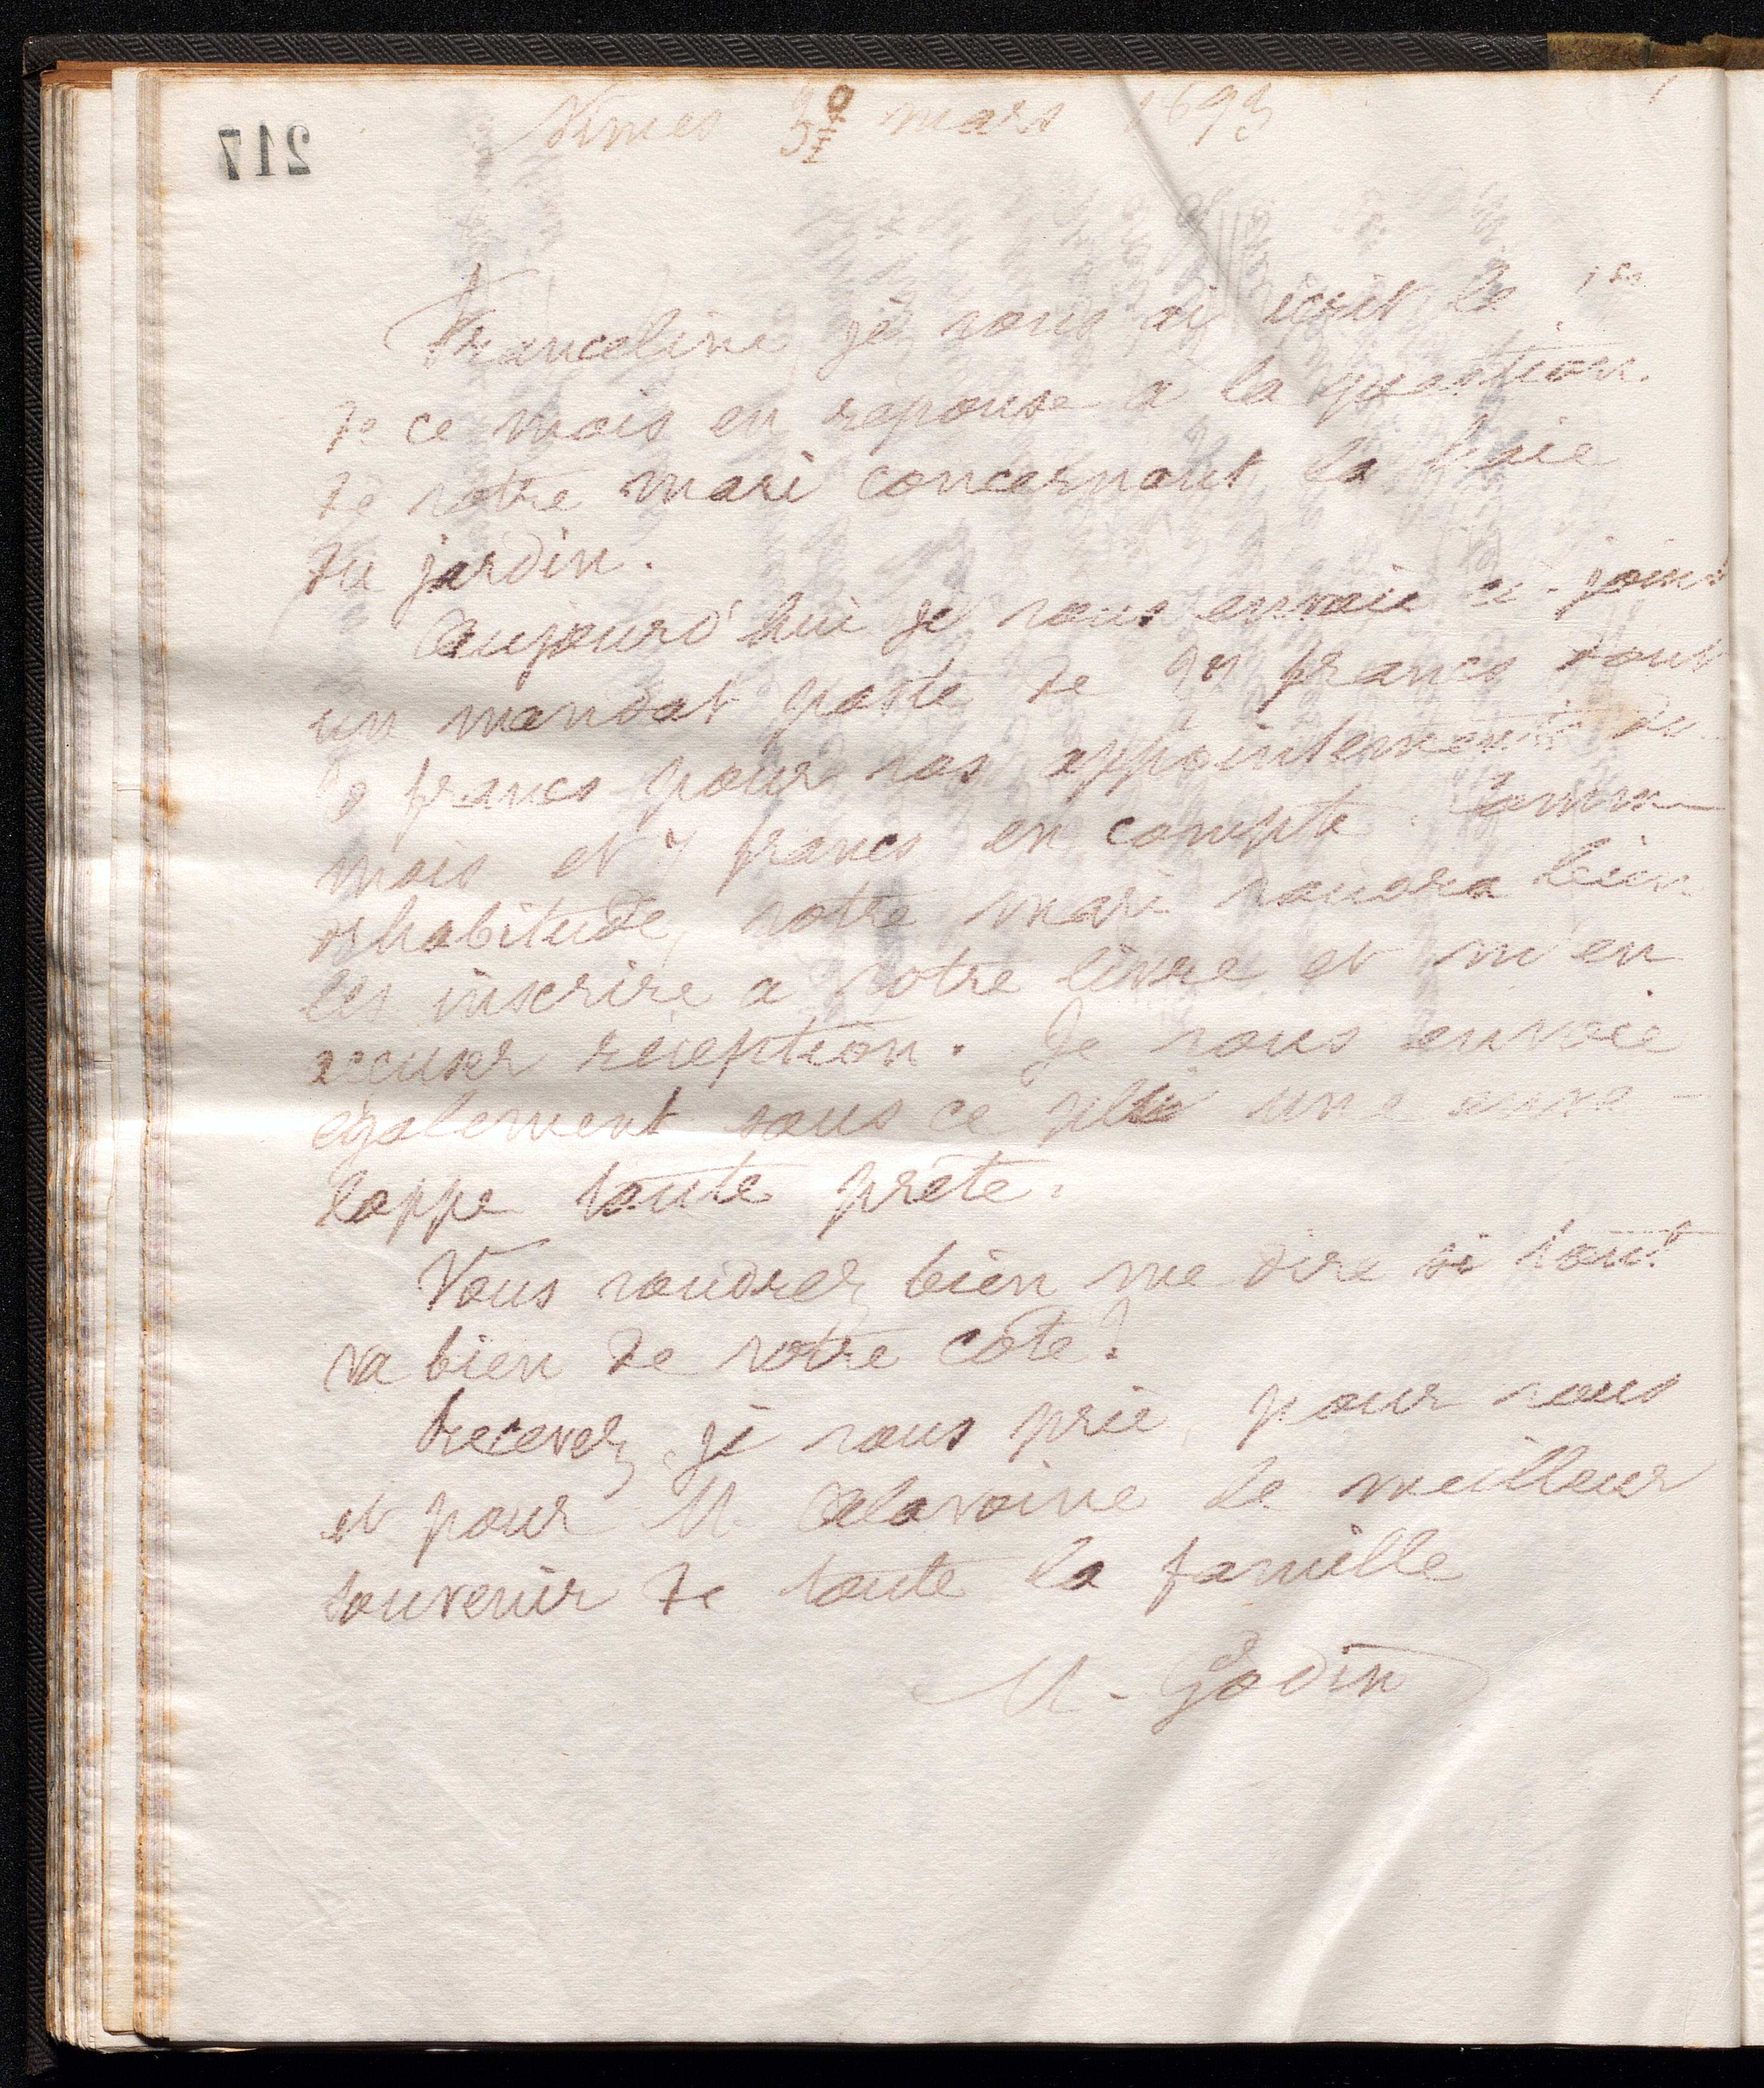 217
Nimes 30 mars 1893
Franceline, je vous ai écrit le 1er
de ce mois en reponse a la question
de votre mari concernant la haie
du jardin.
Aujourd'hui je vous envoie ci-joint
un mandat poste de francs dont
francs pour vos appointements du
mois et 7 francs en compte. Comme
d'habitude, votre mari voudra bien
les inscrire a votre livre et m'en
accuser réception. Je vous envoie
également sous ce pli une enve-
loppe toute prete.
Vous voudrez bien me dire si tout
va bien de votre coté?
Recevez, je vous prie, pour vous
et pour M. Alavoine le meilleur
souvenir de toute la famille
M. Godin